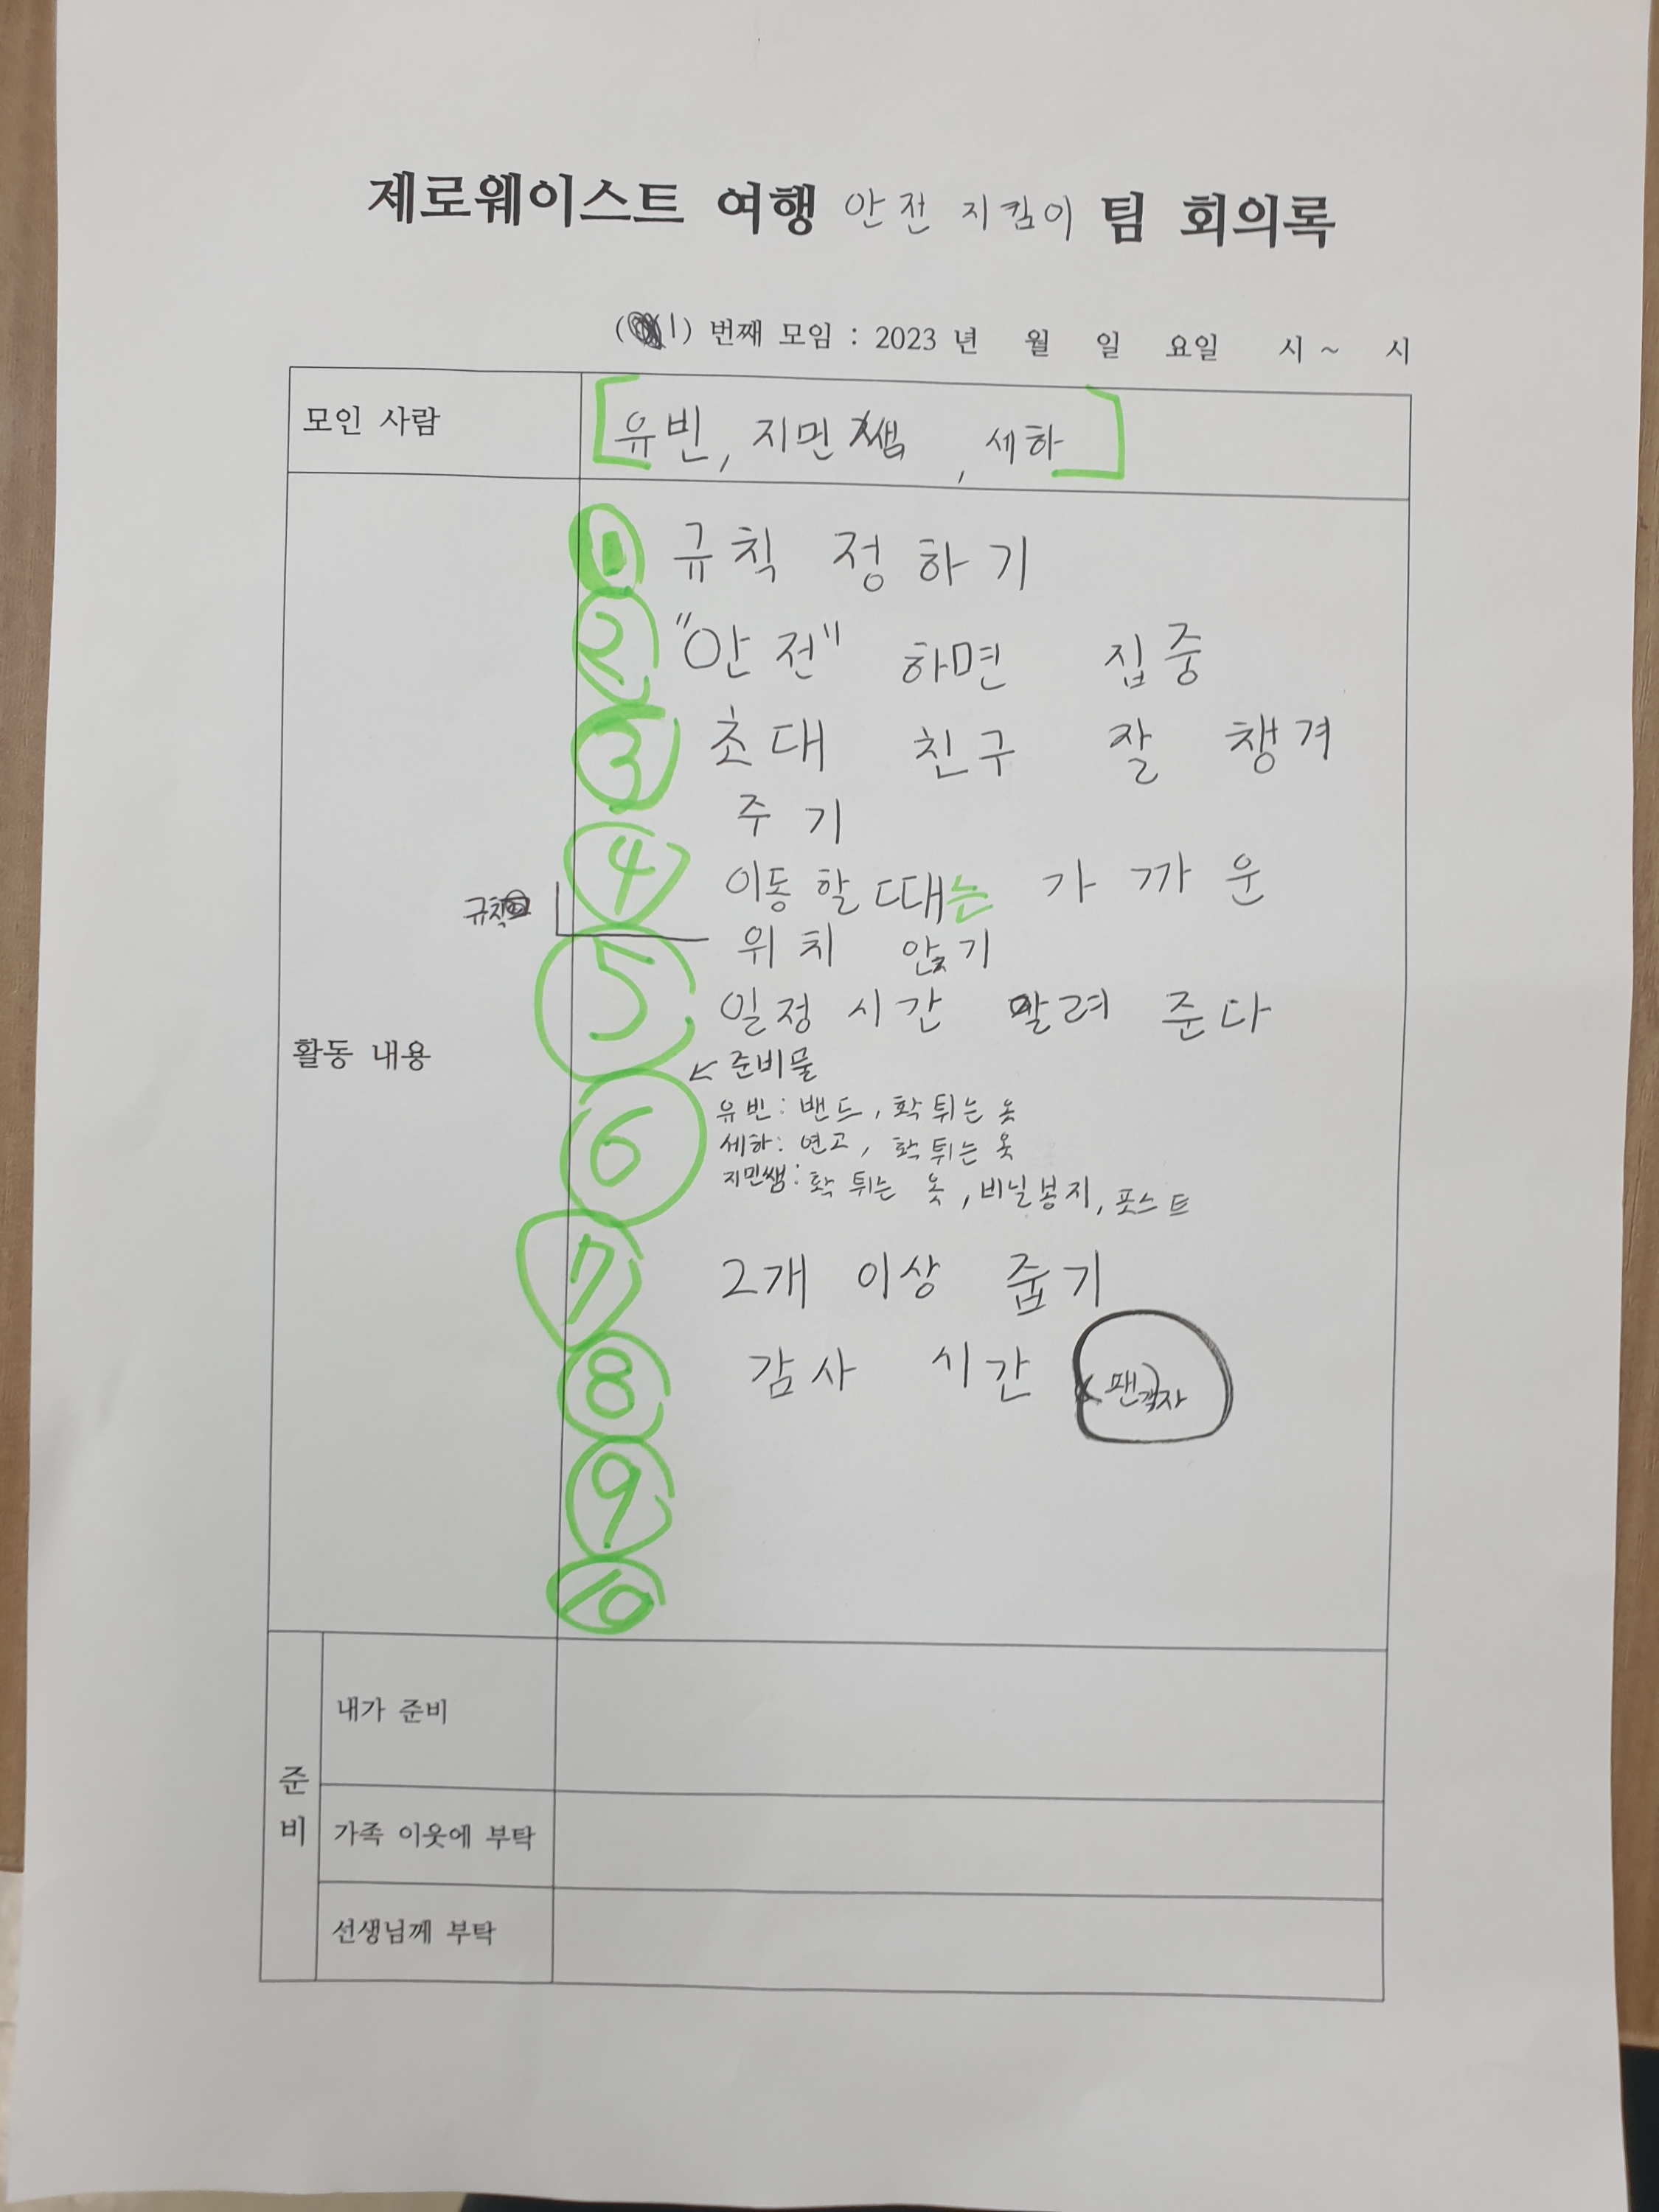 제로웨이스트 여행 안전 지킴이 팀 회의록
( 1) 번째 모임 : 2023 년 월 일 요일 시 ~ 시
모인 사람
유빈, 지민쌤, 세하
활동 내용
1 규칙 정하기
2 "안전" 하면 집중
3 초대 친구 잘 챙겨
주기
4 이동 할 때는 가까운
위치 앉기
규칙
5 일정 시간 알려 준다
6 ↙ 준비물
유빈: 밴드, 확 튀는 옷
세하: 연고, 확 튀는 옷
지민쌤: 확 튀는 옷, 비닐봉지, 포스트
7 2개 이상 줍기
8 감사 시간
9
10
준비
내가 준비
가족 이웃에 부탁
선생님께 부탁